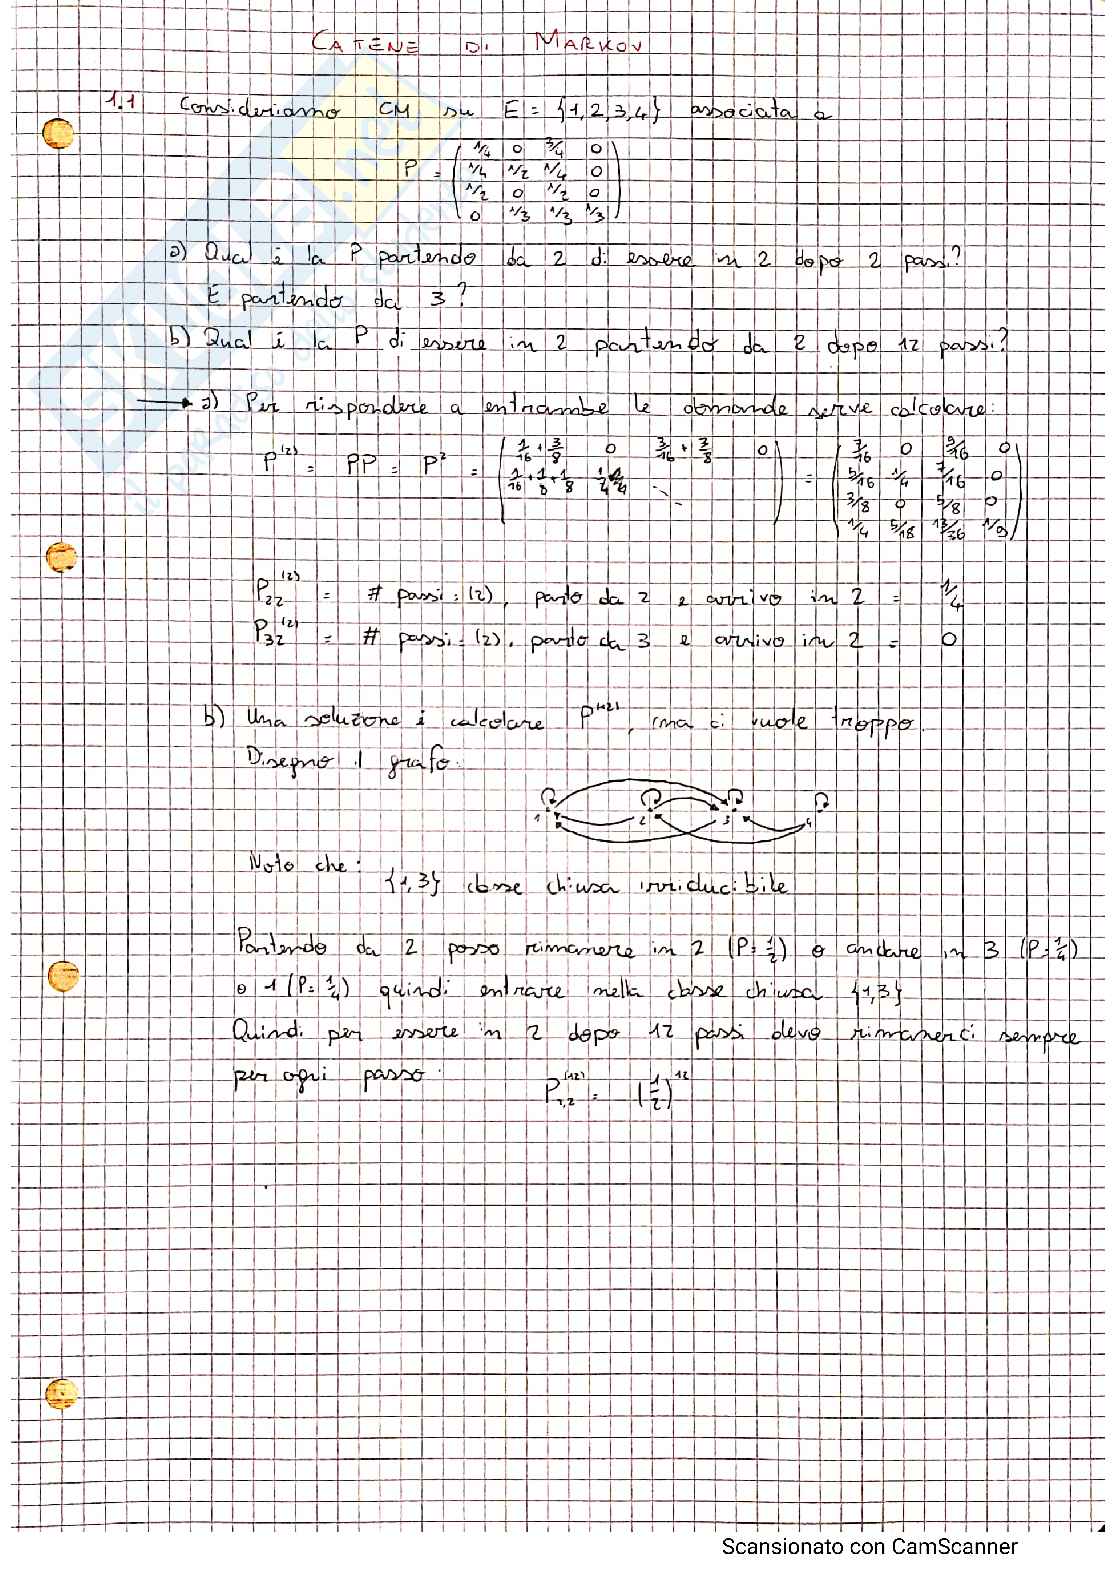 CATENE DI MARKOV
1.1 Consideriamo CM su E = {1,2,3,4} associata a
P = ( 1/4 0 3/4 0
1/4 1/2 1/4 0
1/2 0 1/2 0
0 1/3 1/3 1/3 )
a) Qual è la P partendo da 2 di essere in 2 dopo 2 passi?
E partendo da 3?
b) Qual è la P di essere in 2 partendo da 2 dopo 12 passi?
→ a) Per rispondere a entrambe le domande serve calcolare:
P^(2) = PP = P² = ( 1/16 + 3/8 0 3/16 + 3/8 0
1/16 + 1/8 + 1/8 1/4 ) = ( 7/16 0 9/16 0
5/16 1/4 7/16 0
3/8 0 5/8 0
1/4 5/18 13/36 1/9 )
P22^(2) = # passi: (2), parto da 2 e arrivo in 2 = 1/4
P32^(2) = # passi: (2), parto da 3 e arrivo in 2 = 0
b) Una soluzione è calcolare P^(12), ma ci vuole troppo.
Disegno il grafo:
1 2 3 4
Noto che:
{1,3} classe chiusa irriducibile
Partendo da 2 posso rimanere in 2 (P=1/2) o andare in 3 (P=1/4)
o 1 (P=1/4) quindi entrare nella classe chiusa {1,3}
Quindi per essere in 2 dopo 12 passi devo rimanerci sempre
per ogni passo:
P2,2^(12) = (1/2)^12
Scansionato con CamScanner